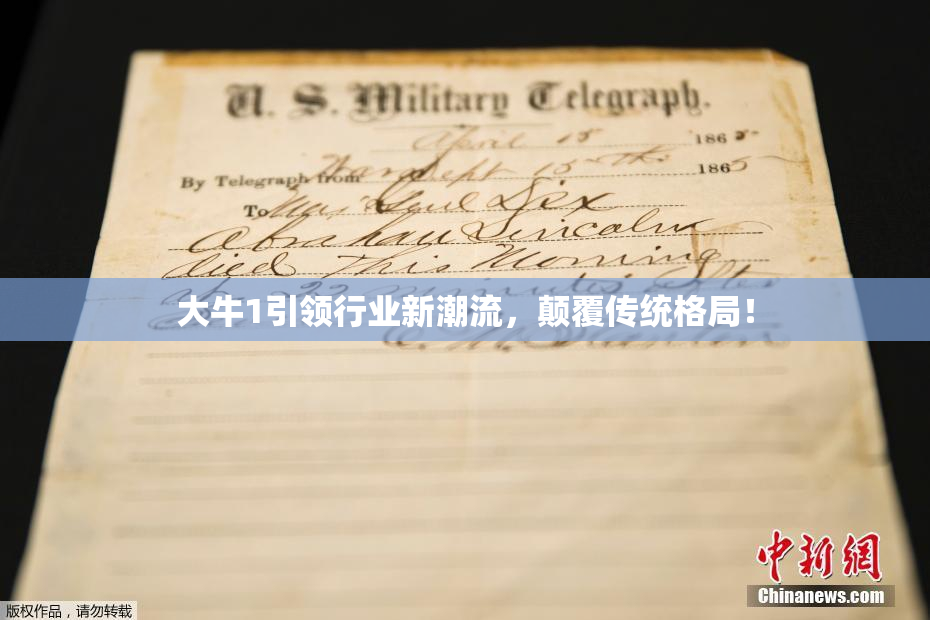 U. S. Military Telegraph.
April 15 1865
By Telegraph from War Dept 15th 1865
To Maj Genl Dix
Abraham Lincoln
died This Morning
22 minutes after
大牛1引领行业新潮流，颠覆传统格局！
E. M. Stanton
中新网
Chinanews.com
版权作品，请勿转载